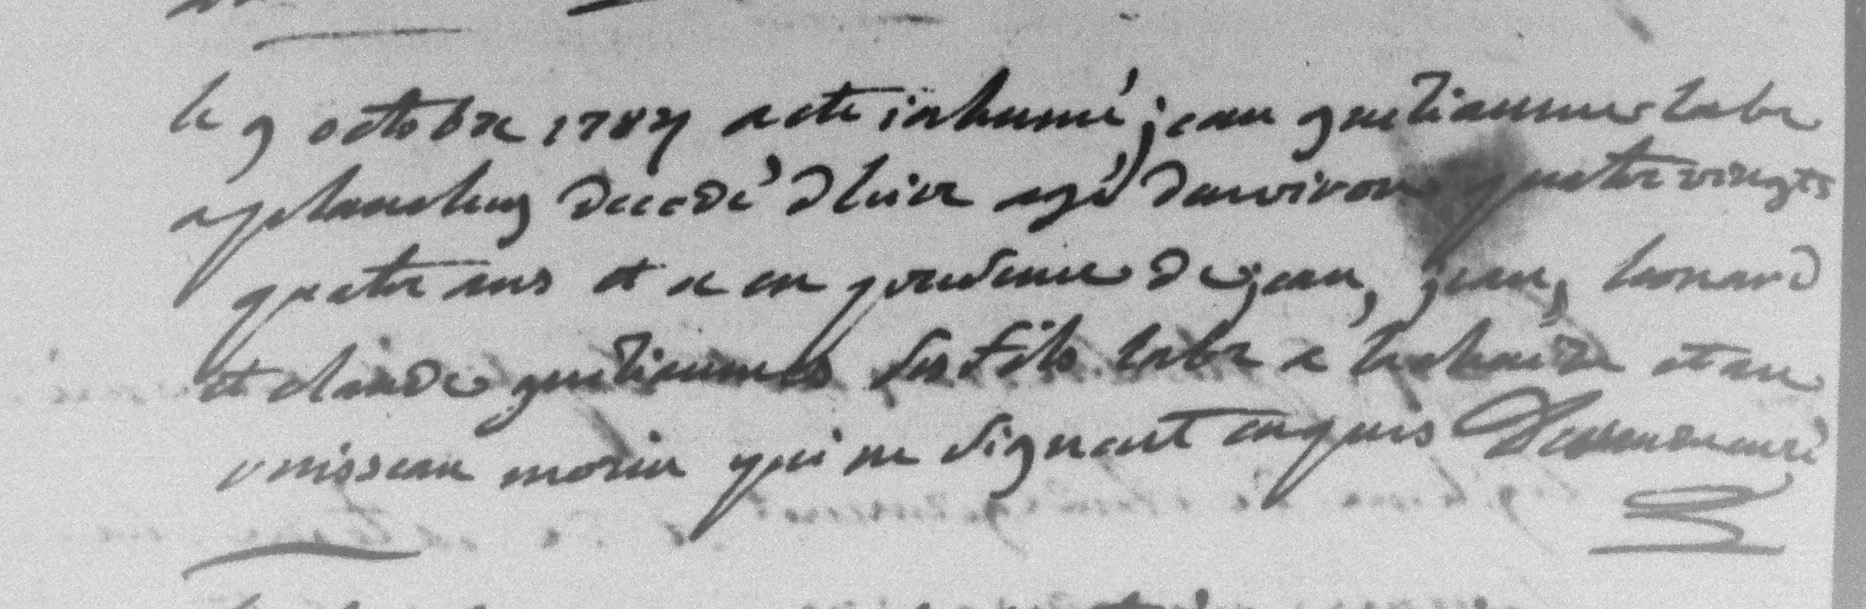 le 9 octobre 1787 a ete inhumé jean guetiaumes labr
a planchez decedé d hier agé denviron quatre vingts
quatre ans et ce en presence de jean, jean, leonard
et claude guetiaumes ses fils labr a et au
vuisseau morin qui ne signent enquis